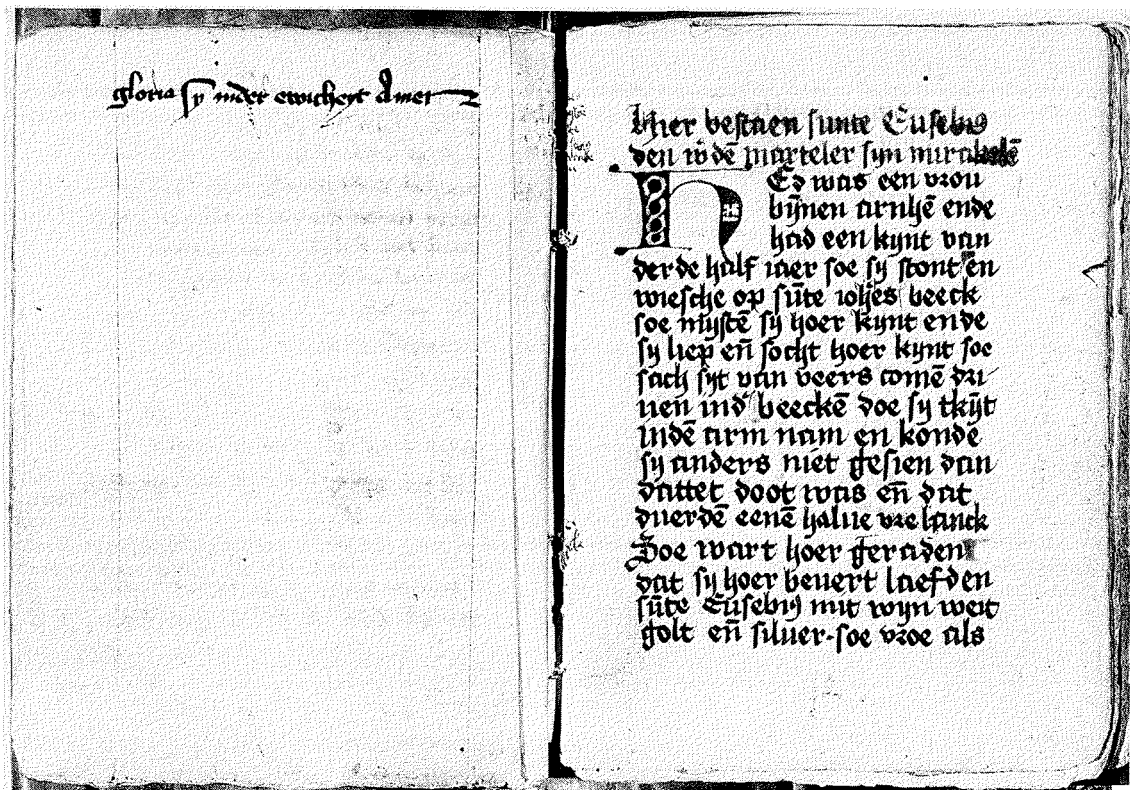 gloria sy inder ewicheyt Amen
Hier bestaen sunte Eusebius
den w̄dē marteler syn mirakelē
HEd was een vrou
bijnen arnhē ende
had een kynt van
derde half iaer soe sy stont en
wiesche op sūte iohes beeck
soe mystē sy hoer kynt ende
sy liep en̄ socht hoer kynt soe
sach syt van veers comē dri
uen ind̄ beeckē doe sy tkȳt
indē arm nam en konde
sy anders niet gesien dan
dattet doot was en̄ dat
duerdē eenē halue vre lanck
Doe wart hoer geraden
dat sy hoer beuert laefden
sūte Eusebius mit wyn weit
golt en̄ siluer·soe vroe als